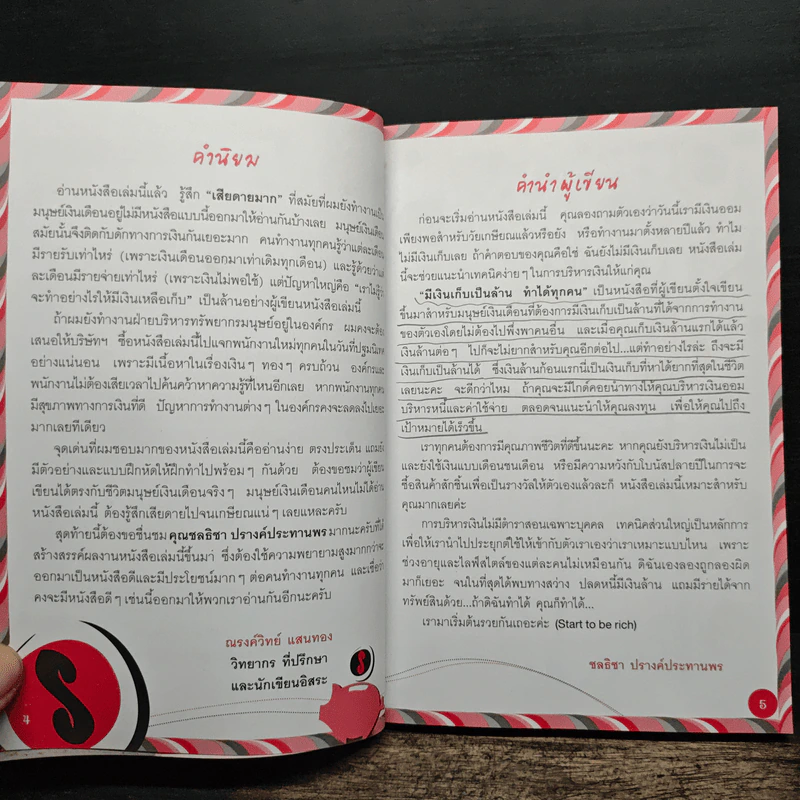 คำนิยม
อ่านหนังสือเล่มนี้แล้ว รู้สึก "เสียดายมาก" ที่สมัยที่ผมยังทำงานเป็น
มนุษย์เงินเดือนอยู่ไม่มีหนังสือแบบนี้ออกมาให้อ่านกันบ้างเลย มนุษย์เงินเดือน
สมัยนั้นจึงติดกับดักทางการเงินกันเยอะมาก คนทำงานทุกคนรู้ว่าแต่ละเดือน
มีรายรับเท่าไหร่ (เพราะเงินเดือนออกมาเท่าเดิมทุกเดือน) และรู้ด้วยว่าแต่
ละเดือนมีรายจ่ายเท่าไหร่ (เพราะเงินไม่พอใช้) แต่ปัญหาใหญ่คือ "เราไม่รู้ว่า
จะทำอย่างไรให้มีเงินเหลือเก็บ" เป็นล้านอย่างผู้เขียนหนังสือเล่มนี้
ถ้าผมยังทำงานฝ่ายบริหารทรัพยากรมนุษย์อยู่ในองค์กร ผมคงจะต้อง
เสนอให้บริษัทฯ ซื้อหนังสือเล่มนี้ไปแจกพนักงานใหม่ทุกคนในวันที่ปฐมนิเทศ
อย่างแน่นอน เพราะมีเนื้อหาในเรื่องเงิน ๆ ทอง ๆ ครบถ้วน องค์กรและ
พนักงานไม่ต้องเสียเวลาไปค้นคว้าหาความรู้ที่ไหนอีกเลย หากพนักงานทุกคน
มีสุขภาพทางการเงินที่ดี ปัญหาการทำงานต่าง ๆ ในองค์กรคงจะลดลงไปเยอะ
มากเลยทีเดียว
จุดเด่นที่ผมชอบมากของหนังสือเล่มนี้คืออ่านง่าย ตรงประเด็น แถมยัง
มีตัวอย่างและแบบฝึกหัดให้ฝึกทำไปพร้อม ๆ กันด้วย ต้องขอชมว่าผู้เขียน
เขียนได้ตรงกับชีวิตมนุษย์เงินเดือนจริง ๆ มนุษย์เงินเดือนคนไหนไม่ได้อ่าน
หนังสือเล่มนี้ ต้องรู้สึกเสียดายไปจนเกษียณแน่ ๆ เลยแหละครับ
สุดท้ายนี้ต้องขอชื่นชม คุณชลธิชา ปรางค์ประทานพร มากนะครับที่ได้
สร้างสรรค์ผลงานหนังสือเล่มนี้ขึ้นมา ซึ่งต้องใช้ความพยายามสูงมากกว่าจะ
ออกมาเป็นหนังสือดีและมีประโยชน์มาก ๆ ต่อคนทำงานทุกคน และเชื่อว่า
คงจะมีหนังสือดี ๆ เช่นนี้ออกมาให้พวกเราอ่านกันอีกนะครับ
ณรงค์วิทย์ แสนทอง
วิทยากร ที่ปรึกษา
และนักเขียนอิสระ
คำนำผู้เขียน
ก่อนจะเริ่มอ่านหนังสือเล่มนี้ คุณลองถามตัวเองว่าวันนี้เรามีเงินออม
เพียงพอสำหรับวัยเกษียณแล้วหรือยัง หรือทำงานมาตั้งหลายปีแล้ว ทำไม
ไม่มีเงินเก็บเลย ถ้าคำตอบของคุณคือใช่ ฉันยังไม่มีเงินเก็บเลย หนังสือเล่ม
นี้จะช่วยแนะนำเทคนิคง่าย ๆ ในการบริหารเงินให้แก่คุณ
"มีเงินเก็บเป็นล้าน ทำได้ทุกคน" เป็นหนังสือที่ผู้เขียนตั้งใจเขียน
ขึ้นมาสำหรับมนุษย์เงินเดือนที่ต้องการมีเงินเก็บเป็นล้านที่ได้จากการทำงาน
ของตัวเองโดยไม่ต้องไปพึ่งพาคนอื่น และเมื่อคุณเก็บเงินล้านแรกได้แล้ว
เงินล้านต่อ ๆ ไปก็จะไม่ยากสำหรับคุณอีกต่อไป...แต่ทำอย่างไรล่ะ ถึงจะมี
เงินเก็บเป็นล้านได้ ซึ่งเงินล้านก้อนแรกนี้เป็นเงินเก็บที่หาได้ยากที่สุดในชีวิต
เลยนะคะ จะดีกว่าไหม ถ้าคุณจะมีไกด์คอยนำทางให้คุณบริหารเงินออม
บริหารหนี้และค่าใช้จ่าย ตลอดจนแนะนำให้คุณลงทุน เพื่อให้คุณไปถึง
เป้าหมายได้เร็วขึ้น
เราทุกคนต้องการมีคุณภาพชีวิตที่ดีขึ้นนะคะ หากคุณยังบริหารเงินไม่เป็น
และยังใช้เงินแบบเดือนชนเดือน หรือมีความหวังกับโบนัสปลายปีในการจะ
ซื้อสินค้าสักชิ้นเพื่อเป็นรางวัลให้ตัวเองแล้วละก็ หนังสือเล่มนี้เหมาะสำหรับ
คุณมากเลยค่ะ
การบริหารเงินไม่มีตำราสอนเฉพาะบุคคล เทคนิคส่วนใหญ่เป็นหลักการ
เพื่อให้เรานำไปประยุกต์ใช้ให้เข้ากับตัวเราเองว่าเราเหมาะแบบไหน เพราะ
ช่วงอายุและไลฟ์สไตล์ของแต่ละคนไม่เหมือนกัน ดิฉันเองลองถูกลองผิด
มาก็เยอะ จนในที่สุดได้พบทางสว่าง ปลดหนี้มีเงินล้าน แถมมีรายได้จาก
ทรัพย์สินด้วย...ถ้าดิฉันทำได้ คุณก็ทำได้...
เรามาเริ่มต้นรวยกันเถอะค่ะ (Start to be rich)
ชลธิชา ปรางค์ประทานพร
5